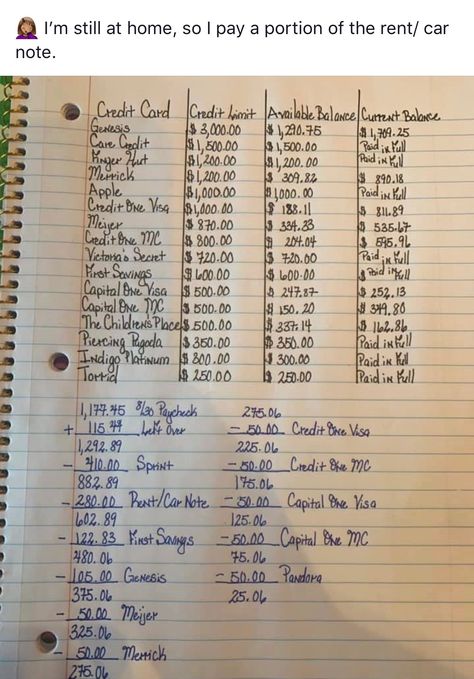 🤦🏽‍♀️ I’m still at home, so I pay a portion of the rent/ car
note.
Credit Card Credit Limit Available Balance Current Balance
Genesis $ 3,000.00 $ 1,290.75 $ 1,709.25
Care Credit $ 1,500.00 $ 1,500.00 Paid in Full
Finger Hut $ 1,200.00 $ 1,200.00 Paid in Full
Merrick $ 1,200.00 $ 309.82 $ 890.18
Apple $ 1,000.00 $ 1000.00 Paid in Full
Credit One Visa $ 1,000.00 $ 188.11 $ 811.89
Meijer $ 870.00 $ 334.33 $ 535.67
Credit One MC $ 800.00 $ 204.04 $ 595.96
Victoria's Secret $ 720.00 $ 720.00 Paid in Full
First Savings $ 600.00 $ 600.00 Paid in Full
Capital One Visa $ 500.00 $ 247.87 $ 252.13
Capital One MC $ 500.00 $ 150.20 $ 349.80
The Children's Place $ 500.00 $ 337.14 $ 162.86
Piercing Pagoda $ 350.00 $ 350.00 Paid in Full
Indigo Platinum $ 300.00 $ 300.00 Paid in Full
Torrid $ 250.00 $ 250.00 Paid in Full
1,177.45 8/30 Paycheck
+ 115.44 Left Over
1,292.89
- 410.00 Sprint
882.89
- 280.00 Rent/Car Note
602.89
- 122.83 First Savings
480.06
- 105.00 Genesis
375.06
- 50.00 Meijer
325.06
- 50.00 Merrick
275.06
275.06
- 50.00 Credit One Visa
225.06
- 50.00 Credit One MC
175.06
- 50.00 Capital One Visa
125.06
- 50.00 Capital One MC
75.06
- 50.00 Pandora
25.06